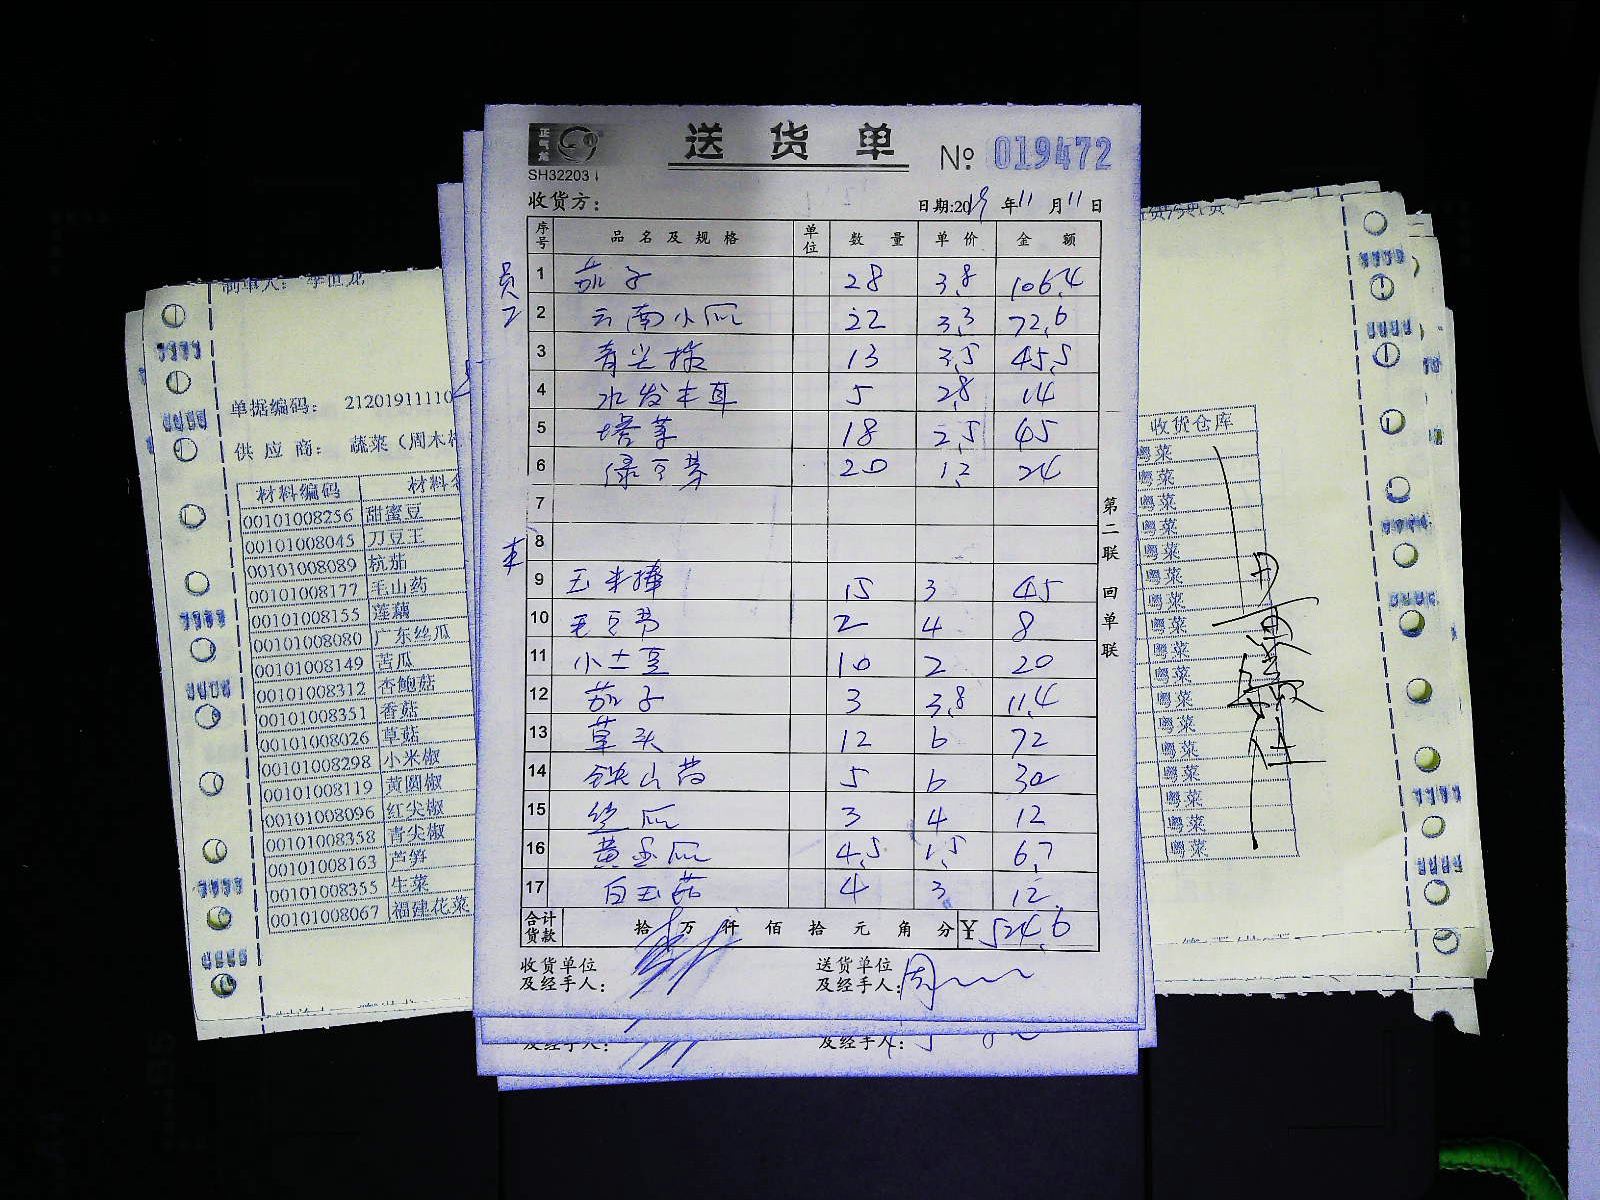 正气龙
送 货 单
№ 019472
SH32203
收货方：
日期:2019年11月11日
序号 品名及规格 单位 数量 单价 金额
员工
1 茄子 28 3.8 106.4
2 云南小瓜 22 3.3 72.6
3 青尖椒 13 3.5 45.5
4 水发木耳 5 2.8 14
5 塔菜 18 2.5 45
6 绿豆芽 20 1.2 24
7
8
9 玉米棒 15 3 45
10 毛豆节 2 4 8
11 小土豆 10 2 20
12 茄子 3 3.8 11.4
13 草头 12 6 72
14 铁山药 5 6 30
15 丝瓜 3 4 12
16 黄金瓜 4.5 1.5 6.7
17 白玉菇 4 3 12
合计货款 拾 万 仟 佰 拾 元 角 分 ¥ 524.6
收货单位及经手人：
送货单位及经手人：周
第二联 回单联
及经手人：
及经手人：
制单人：李恒龙
单据编码： 21201911110
供应商： 蔬菜（周木
材料编码 材料名
00101008256 甜蜜豆
00101008045 刀豆王
00101008089 杭茄
00101008177 毛山药
00101008155 莲藕
00101008080 广东丝瓜
00101008149 苦瓜
00101008312 杏鲍菇
00101008351 香菇
00101008026 草菇
00101008298 小米椒
00101008119 黄圆椒
00101008096 红尖椒
00101008358 青尖椒
00101008163 芦笋
00101008355 生菜
00101008067 福建花菜
收货仓库
粤菜
粤菜
粤菜
粤菜
粤菜
粤菜
粤菜
粤菜
粤菜
粤菜
粤菜
粤菜
粤菜
粤菜
粤菜
粤菜
粤菜